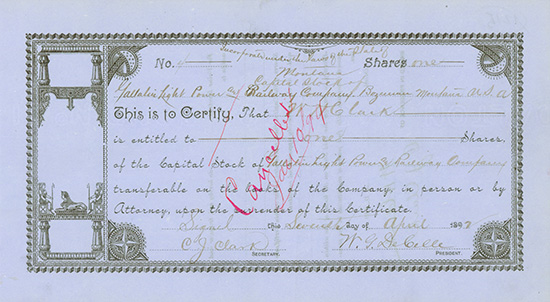 Incorporated under the Laws of the State of
No. 4 Montana Shares one
Capital Stock
Gallatin Light Power & Railway Company, Bozeman Montana U.S.A
This is to Certify, That W. H. Clark
is entitled to one Shares,
of the Capital Stock of Gallatin Light Power & Railway Company
transferable on the books of the Company, in person or by
Attorney, upon the surrender of this Certificate.
Signed this Seventh day of April 1893
C J Clark W. G. DeCelle
SECRETARY. PRESIDENT.
Cancelled